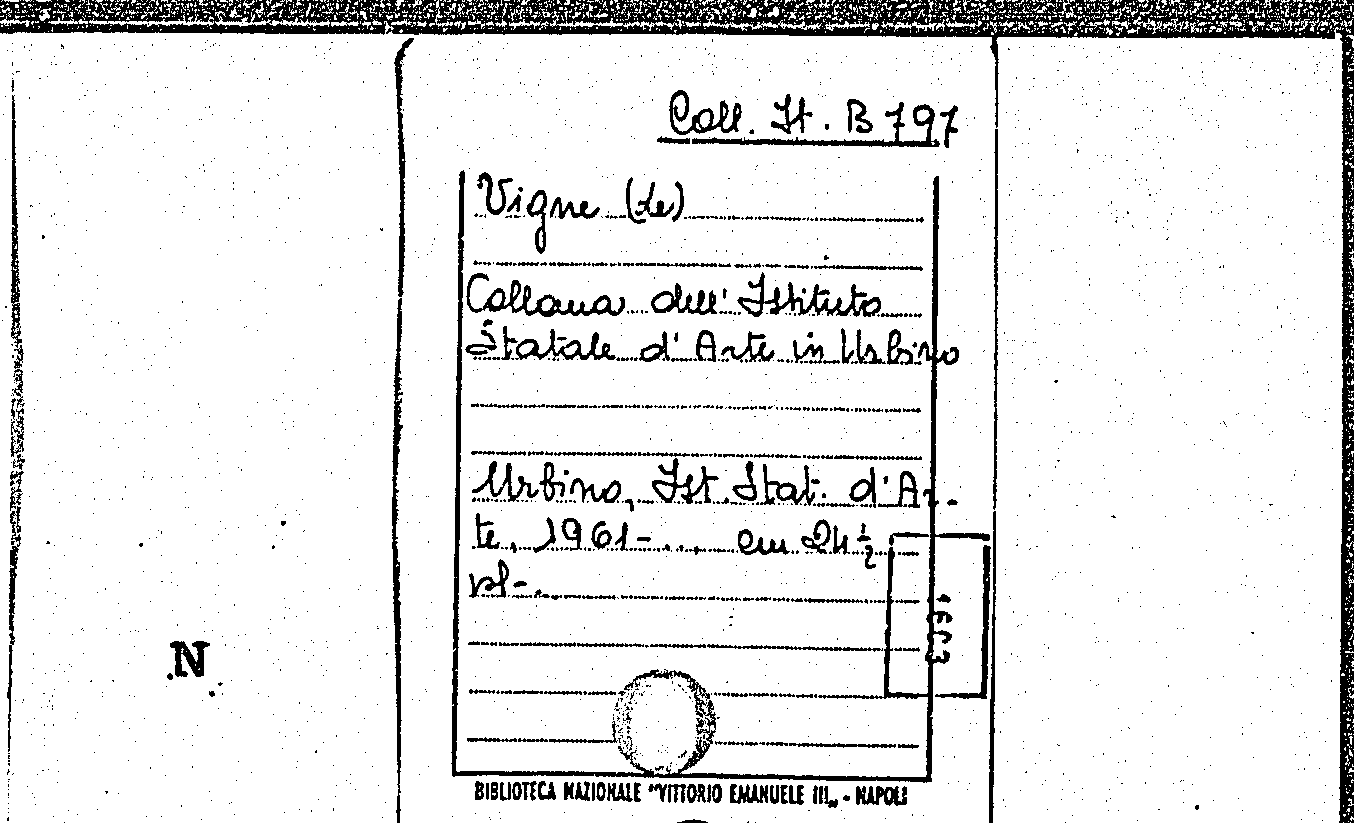 Coll. It. B 797
Vigne (Le)
Collana dell' Istituto
Statale d' Arte in Urbino
Urbino, Ist. Stat. d' Ar-
te, 1961-... cm 24 ½
vl-.
N
BIBLIOTECA NAZIONALE "VITTORIO EMANUELE III„ - NAPOLI